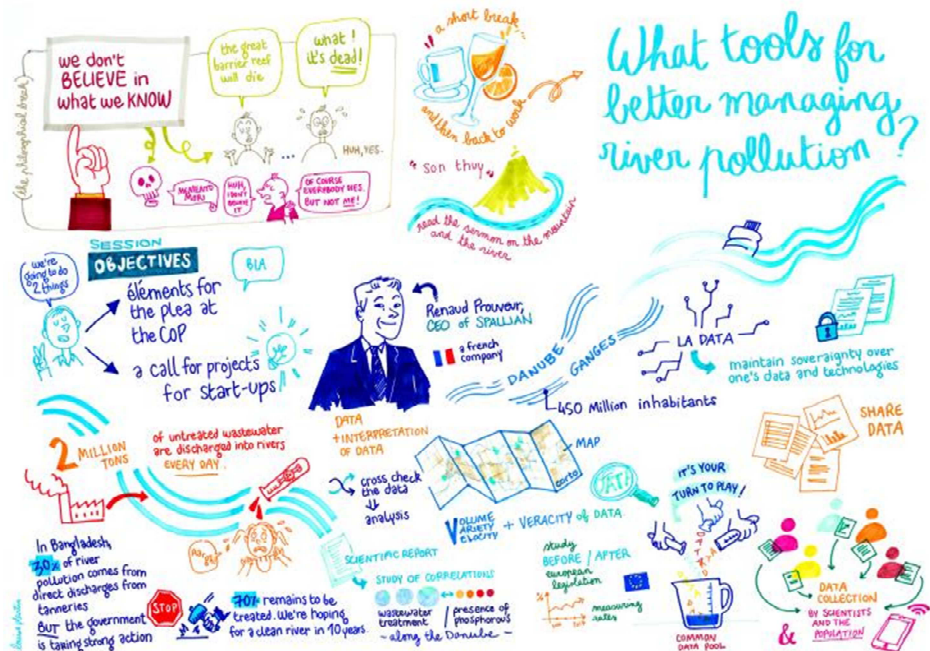 (the philosophical break)
we don't
BELIEVE in
what we KNOW
the great
barrier reef
will die
what!
it's dead!
HUH, YES.
MEMENTO
MORI
HUH,
I DON'T
BELIEVE
IT
OF COURSE
EVERYBODY DIES.
BUT NOT ME!
"a short break...
and then back to work"
"son thuy"
read the sermon on the mountain
and the river
What tools for
better managing
river pollution?
SESSION
OBJECTIVES
we're
going to do
2 things
BLA
éléments for
the plea at
the COP
a call for projects
for start-ups
Renaud Prouveur,
CEO of SPALLIAN
a french
company
DANUBE
GANGES
450 Million inhabitants
LA DATA
maintain soveraignty over
one's data and technologies
SHARE
DATA
2 MILLION
TONS
of untreated wastewater
are discharged into rivers
EVERY DAY.
DATA
+ INTERPRETATION
OF DATA
cross check
the data
analysis
MAP
carto
VOLUME
VARIETY
VELOCITY
+ VERACITY of DATA
DATA
IT'S YOUR
TURN TO PLAY!
In Bangladesh,
30% of river
pollution comes from
direct discharges from
tanneries
BUT the government
is taking strong action
STOP
70% remains to be
treated. We're hoping
for a clean river in 10 years.
SCIENTIFIC REPORT
STUDY OF CORRELATIONS
wastewater
treatment
/ presence of
phosphorous
- along the Danube -
study
BEFORE / AFTER
european
legislation
measuring
rules
COMMON
DATA POOL
DATA
COLLECTION
BY SCIENTISTS
AND THE
POPULATION
&